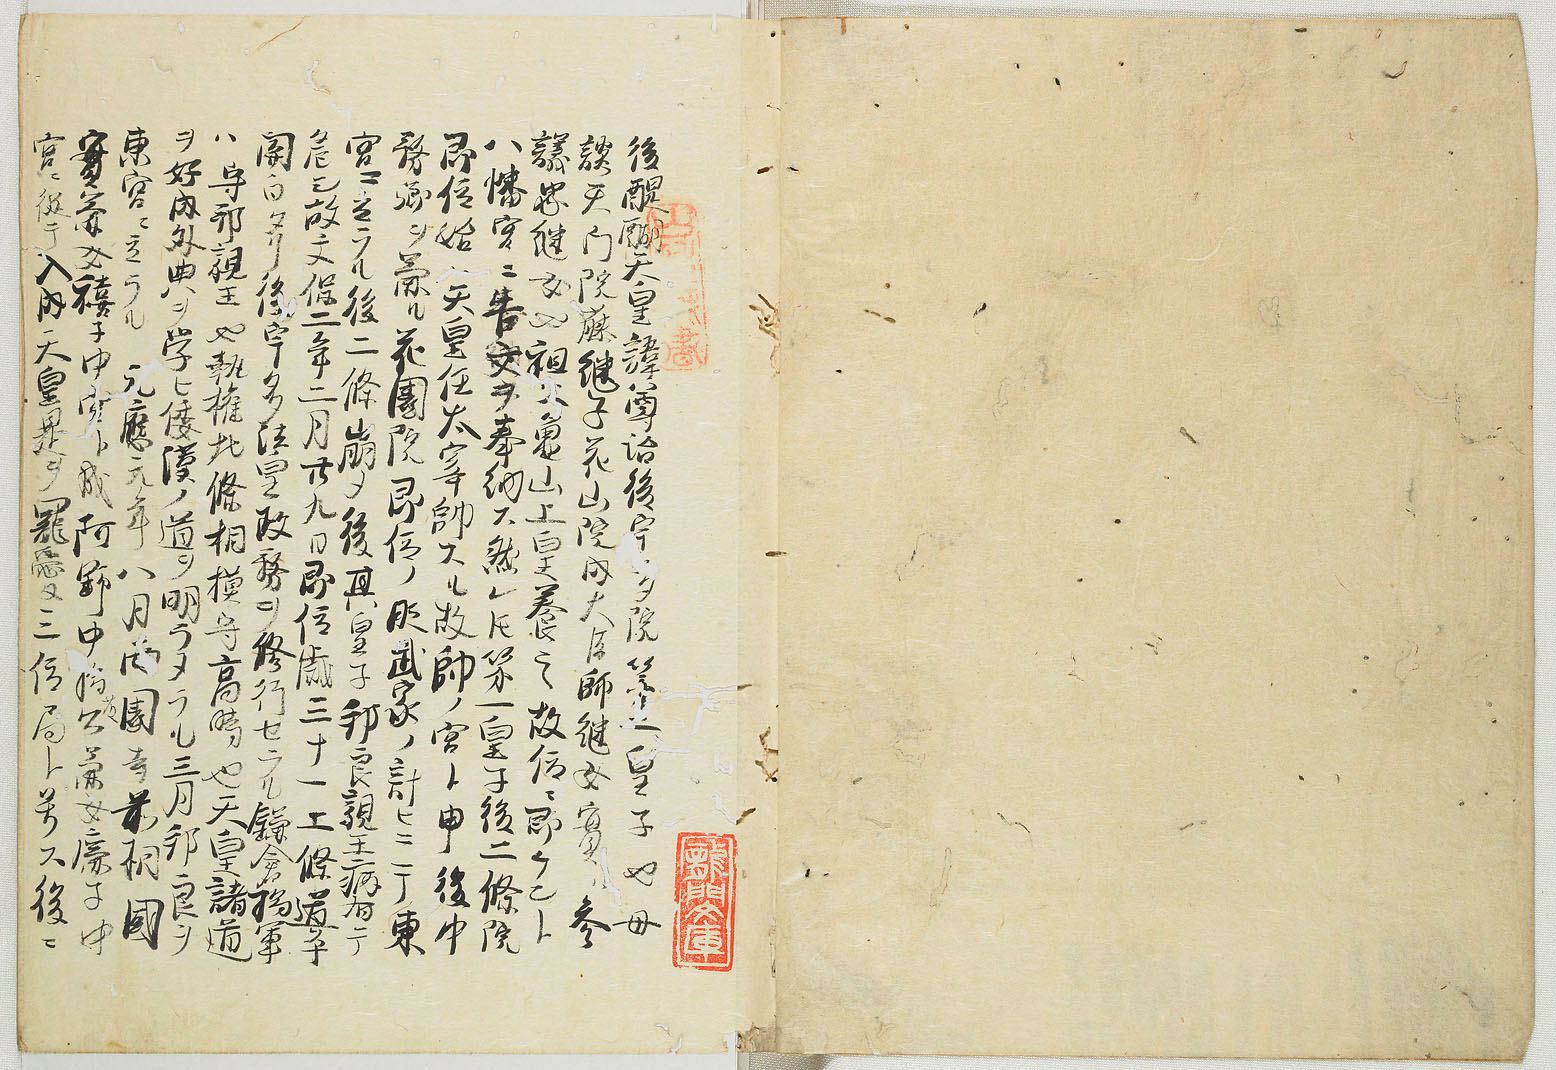 後醍醐天皇諱尊治後宇多院第二皇子也母
談天門院藤継子花山院内大臣師継女実ハ参
議忠継女也祖父亀山上皇養之故位ニ即クコト
八幡宮ニ告文ヲ奉納ス然レ𪜈第一皇子後二條院
即位始ハ天皇任太宰帥スル故帥ノ宮ト申後中
務卿ヲ兼ル花園院即位ノ時武家ノ計ヒニテ東
宮ニ立ラル後二條崩シ後其皇子邦良親王病有テ
危シ故文保二年二月廿九日即位歳三十一二條道平
関白タリ後宇多法皇政務ヲ修行セラル鎌倉将軍
ハ守邦親王也執権北條相模守高時也天皇諸道
ヲ好内外典ヲ学ヒ倭漢ノ道ヲ明ラメラル三月邦良ヲ
東宮ニ立ラル 元應元年八月西園寺前相國
實兼女禧子中宮ト成阿野中将公廉女廉子中
宮ニ従テ入内天皇是ヲ寵愛シ三位局ト号ス後ニ
龍門文庫